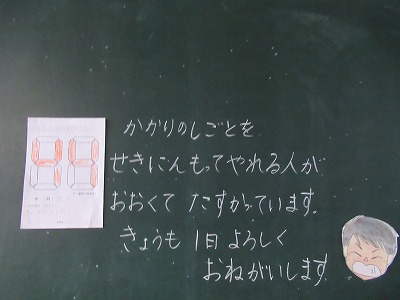 かかりのしごとを
せきにんもってやれる人が
おおくて たすかっています。
きょうも 1日 よろしく
おねがいします
44